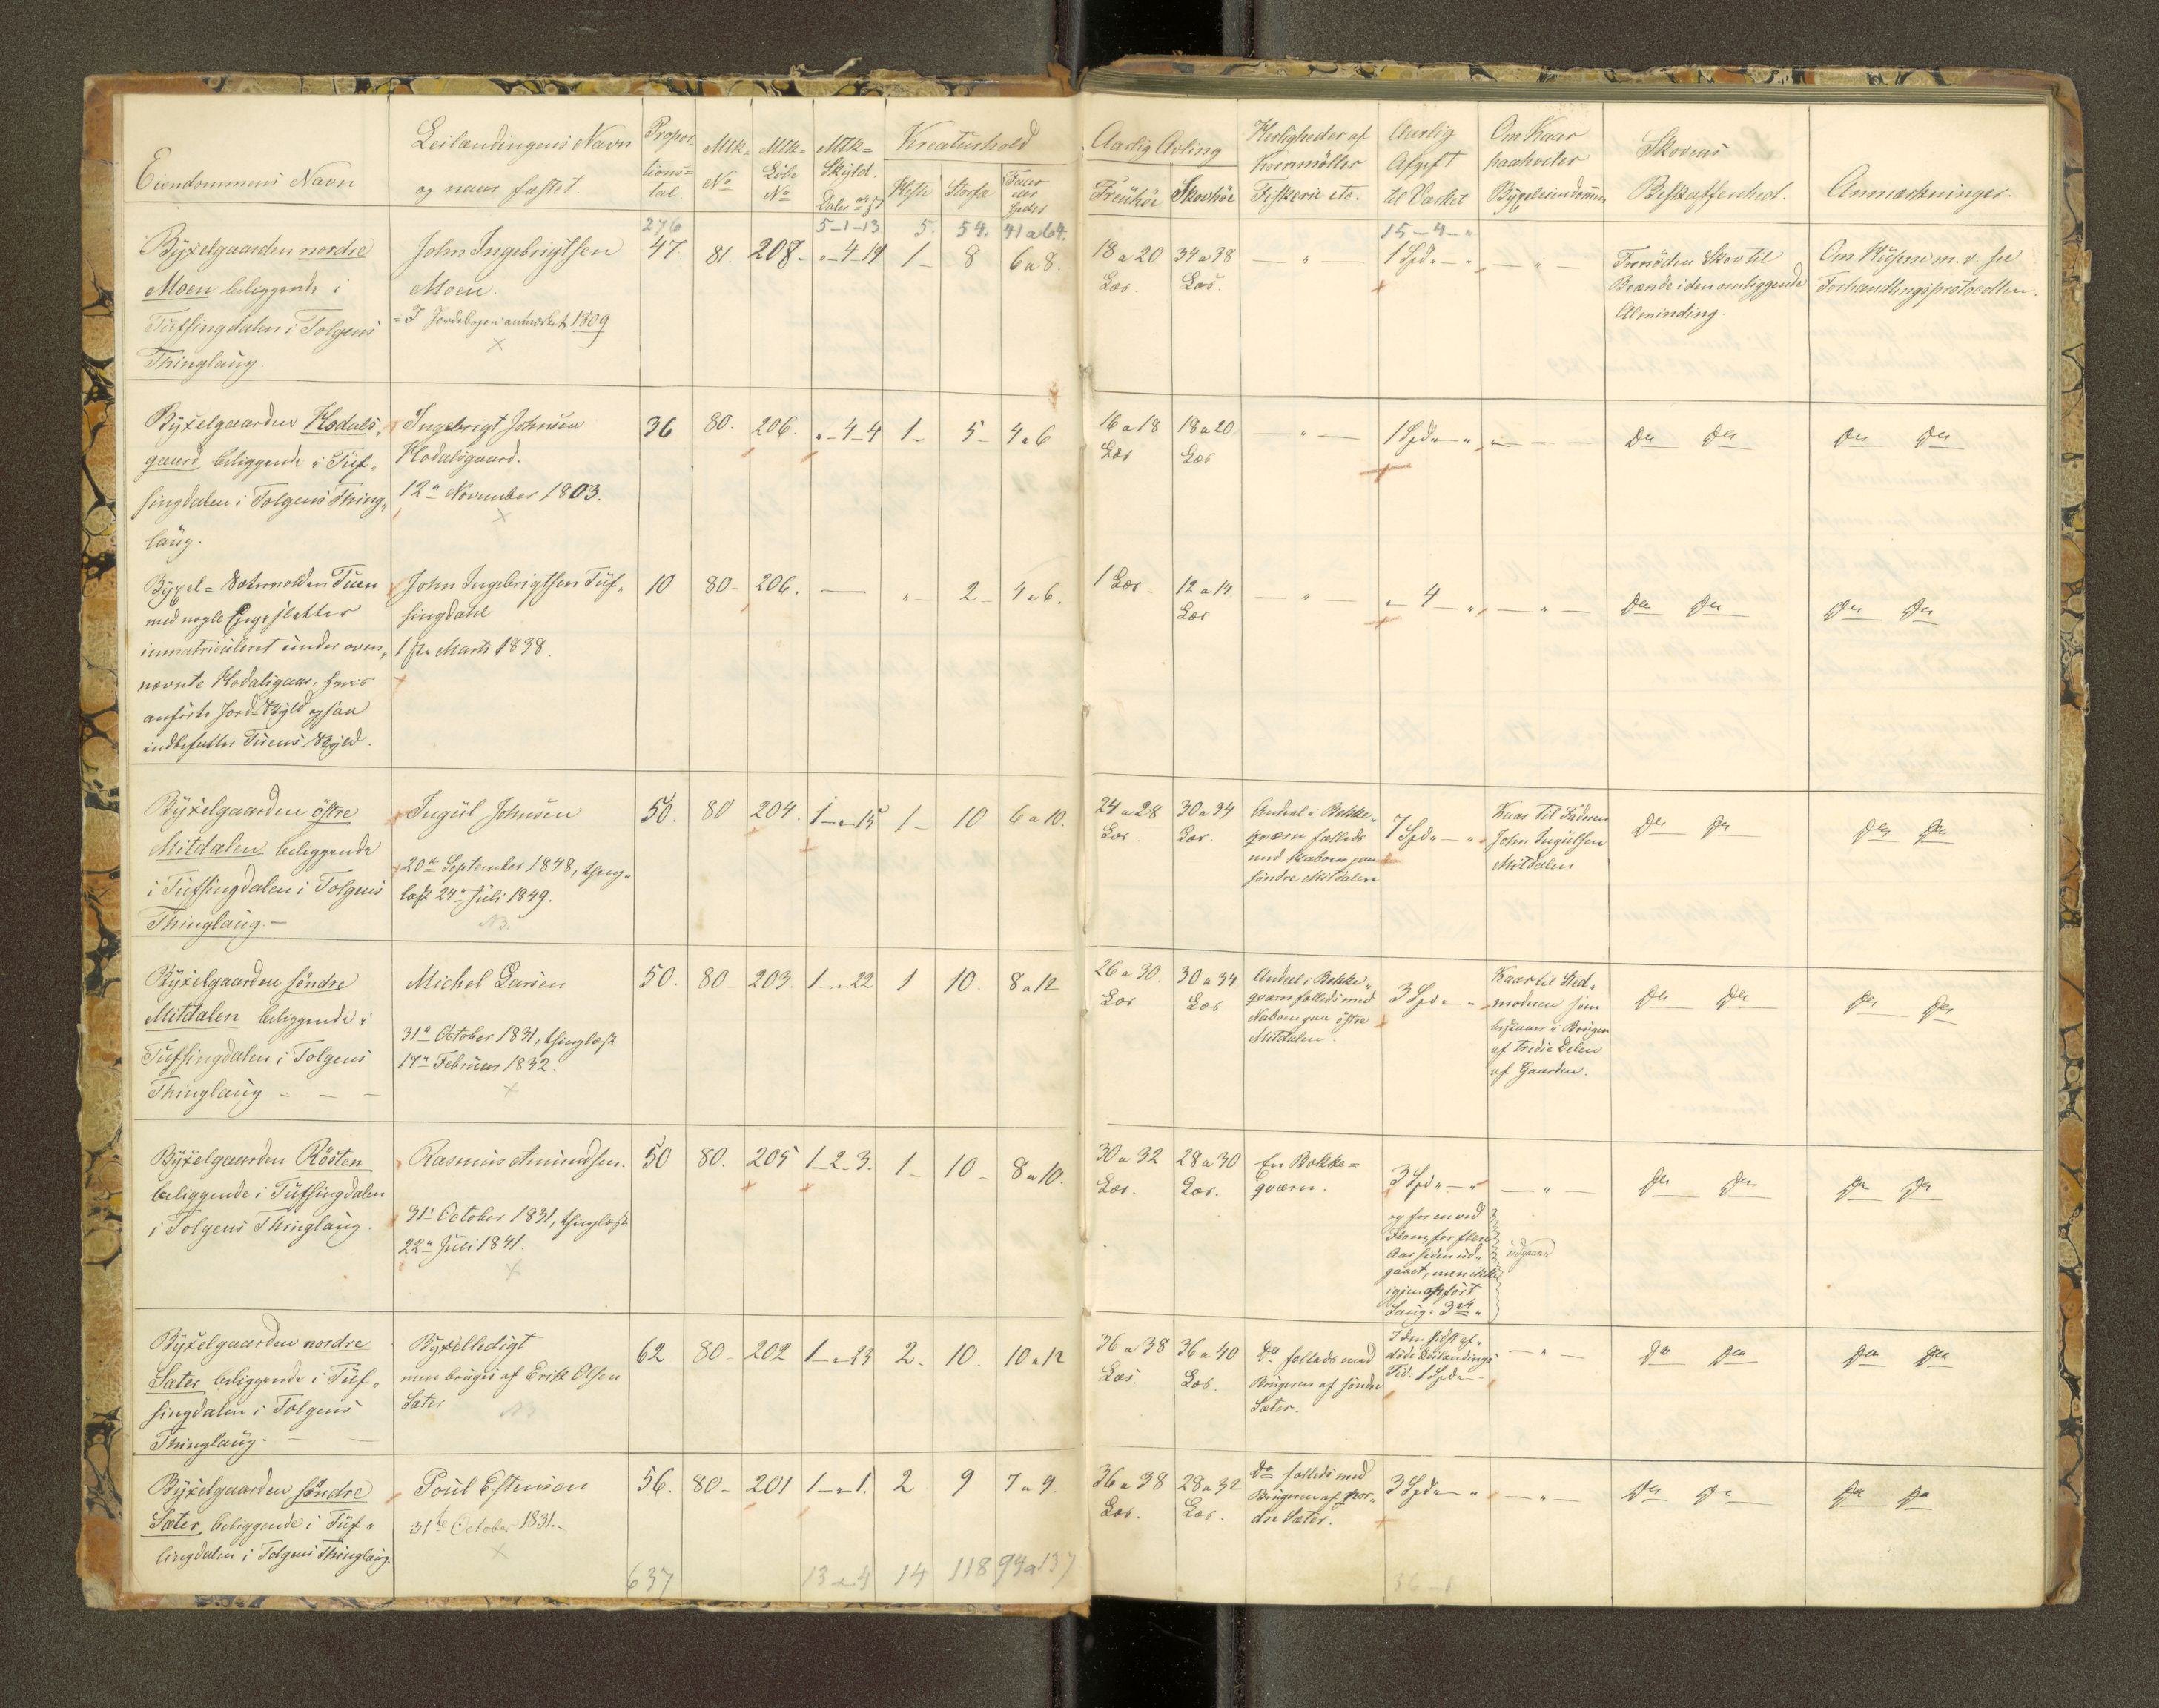 Eiendommens Navn
Leilændingens Navn
og naar fæstet.
Propor-
tions=
tal
Mtk=
No
Mtk=
Löbe
No
Mtk=
Skyld.
Daler
Kreaturhold
Heste
Storfæ
Faar
eller
Geder
Aarlig Avling
Fröehöe
Skovhöe
Herligheder af
Kornmöller
Fiskerie etc.
Aarlig
Afgift
til Værket
Om Kaar
paahviler
Bygseleiendommen
Skovens
Beskaffenhed.
Anmærkninger.
276 5-1-13 5. 54. 41 a 64. 15-4-"
Byxelgaarden nordre
Moen beliggende i
Tufsingdalen i Tolgens
Thinglaug.
John Ingebrigtsen
Moen.
= I Jordebogen anmærket 1809
47. 81. 208. "-4-14 1- 8 6 a 8.
18 a 20
Læs.
34 a 38
Læs.
— " —
1 Spd "-"
— " —
Fornöden Skov til
Brænde i den omliggende
Alminding.
Om Husene m. v. see
Forhandlingsprotocollen.
Byxelgaarden Hodals„
gaard beliggende i Tuf„
singdalen i Tolgens Thing„
laug.
Ingebrigt Johnsen
Hodalsgaard.
12te November 1803.
36 80. 206. "-4-4 1- 5- 4 a 6
16 a 18
Læs
18 a 20
Læs
— " —
1 Spd "-"
Do Do
Do Do
Byxel= Sætervolden Tuen
med nogle Engesletter
inmatriculeret under oven„
nævnte Hodalsgaar, hvis
anförte Jord=Skyld ogsaa
indbefatter Tuens Skyld.
John Ingebrigtsen Tuf„
singdahl
1ste Marts 1838.
10 80- 206. — "- 2- 4 a 6.
1 Læs-
12 a 14
Læs
— " —
"-4-"
— " —
Do Do
Do Do
Byxelgaarden östre
Mitdalen beliggende
i Tufsingdalen i Tolgens
Thinglaug.-
Ingul Johnsen
20de September 1848, thing„
læst 24de Juli 1849.
NB.
50. 80 204. 1-"-15 1- 10 6 a 10.
24 a 28
Læs.
30 a 34
Læs.
Andeel i Bække„
qværn fælleds
med Naboen paa
söndre Mitdalen
7 Spd "-"
Kaar til Faderen
John Ingulsen
Mitdalen
Do Do
Do Do
Byxelgaarden söndre
Mitdalen beliggende i
Tufsingdalen i Tolgens
Thinglaug - - -
Michel Larsen
31te October 1831, thinglæst
17de Februar 1832.
50. 80- 203. 1-"-22 1 10. 8 a 12
26 a 30
Læs
30 a 34
Læs
Andeel i Bække„
qværn fælleds med
Naboen paa östre
Mitdalen.
3 Spd "-"
Kaar til Sted„
moderen som
bestaaer i Brugen
af tredie Delen
af Gaarden.
Do Do
Do Do
Byxelgaarden Rösten
beliggende i Tufsingdalen
i Tolgens Thinglaug.
Rasmus Amundsen.
31te October 1831, thinglæst
22de Juli 1841.
50 80. 205 1-2-3. 1- 10- 8 a 10.
30 a 32
Læs.
28 a 30
Læs.
En Bække=
qværn.
3 Spd "-"
og for en ved
Flom, for flere
Aar siden ud„
gaaet, men ikke
igjen opfört
Saug: 3
udgaaer
— " —
Do Do
Do Do
Byxelgaarden nordre
Sæter beliggende i Tuf„
singdalen i Tolgens
Thinglaug. -
Byxelledigt
men bruges af Erik Olsen
Sæter
NB
62 80- 202 1-"-23 2. 10. 10 a 12
36 a 38
Læs.
36 a 40
Læs.
Do fælleds med
Brugeren af söndre
Sæter.
I den sidst af„
döde Leilændings
Tid: 1 Spd "-
— " —
Do Do
Do Do
Byxelgaarden söndre
Sæter, beliggende i Tuf„
singdalen i Tolgens Thinglaug.
Poul Estensen
31te October 1831.-
56. 80- 201 1-"-1. 2 9 7 a 9.
36 a 38
Læs.
28 a 32
Læs.
Do fælleds med
Brugeren af nor„
dre Sæter.
3 Spd "-"
— " —
Do Do
Do Do
637 13-"-4 14 118 94 a 137
36-1